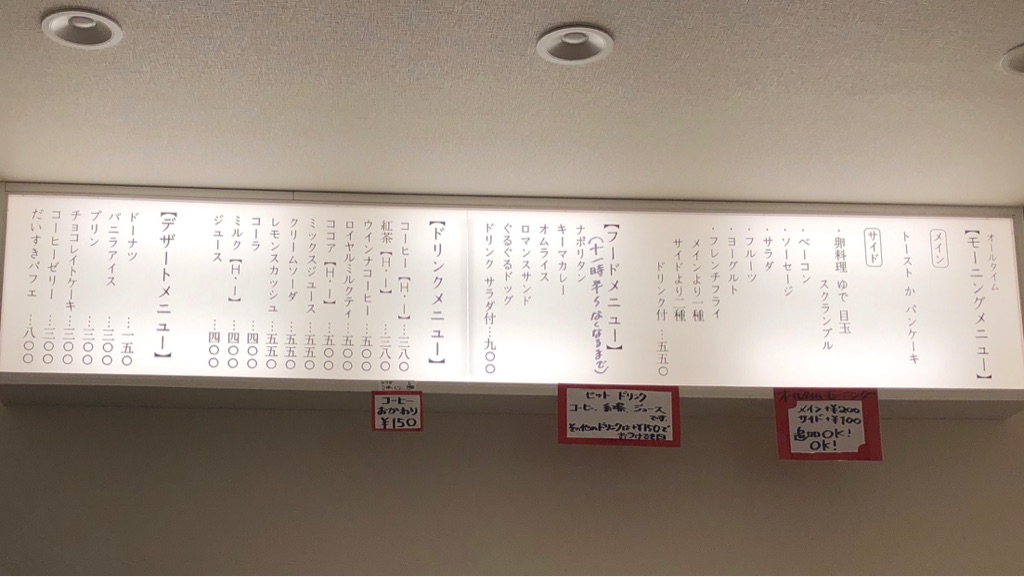 オールタイム
【モーニングメニュー】
メイン
トースト か パンケーキ
サイド
・卵料理 ゆで 目玉
スクランブル
・ベーコン
・ソーセージ
・サラダ
・フルーツ
・ヨーグルト
・フレンチフライ
メインより一種
サイドより二種
ドリンク付…五五〇
【フードメニュー】
(十一時半〜なくなるまで)
ナポリタン
キーマカレー
オムライス
ロマンスサンド
ぐるぐるドッグ
ドリンク サラダ付…九〇〇
【ドリンクメニュー】
コーヒー【H・I】…三八〇
紅茶【H・I】…三八〇
ウインナコーヒー…五〇〇
ロイヤルミルクティ…五〇〇
ココア【H・I】…五〇〇
ミックスジュース…五五〇
クリームソーダ…五五〇
レモンスカッシュ…五五〇
コーラ…四〇〇
ミルク【H・I】…四〇〇
ジュース…四〇〇
【デザートメニュー】
ドーナツ…一五〇
バニラアイス…三〇〇
プリン…三〇〇
チョコレイトケーキ…三〇〇
コーヒーゼリー…三〇〇
だいすきパフェ…八〇〇
コーヒー
おかわり
¥150
セット ドリンク
コーヒー、紅茶、ジュース
です。
その他のドリンクは+¥150で
メイン+¥200
サイド+¥100
追加OK!
OK!